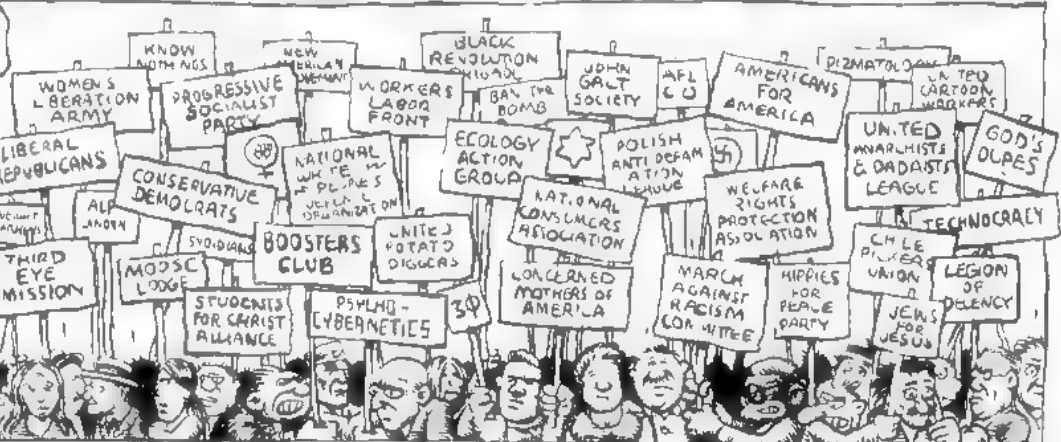 KNOW
NOTHINGS
NEW
AMERICAN
MOVEMENT
BLACK
REVOLUTION
BRIGADE
WOMENS
LIBERATION
ARMY
PROGRESSIVE
SOCIALIST
PARTY
WORKERS
LABOR
FRONT
BAN THE
BOMB
JOHN
GALT
SOCIETY
AFL
AMERICANS
FOR
AMERICA
UNITED
CARTOON
WORKERS
LIBERAL
REPUBLICANS
CONSERVATIVE
DEMOCRATS
NATIONAL
WHITE
PEOPLE'S
ORGANIZATION
ECOLOGY
ACTION
GROUP
POLISH
ANTI DEFAM
ATION
LEAGUE
UNITED
ANARCHISTS
& DADAISTS
LEAGUE
GOD'S
DUPES
BOOSTERS
CLUB
UNITED
POTATO
DIGGERS
NATIONAL
CONSUMERS
ASSOCIATION
WELFARE
RIGHTS
PROTECTION
ASSOCIATION
TECHNOCRACY
THIRD
EYE
MISSION
MOOSE
LODGE
STUDENTS
FOR CHRIST
ALLIANCE
PSYCHO-
CYBERNETICS
3Φ
CONCERNED
MOTHERS OF
AMERICA
MARCH
AGAINST
RACISM
COMMITTEE
HIPPIES
FOR
PEACE
PARTY
CHILE
PICKERS
UNION
JEWS
FOR
JESUS
LEGION
OF
DECENCY